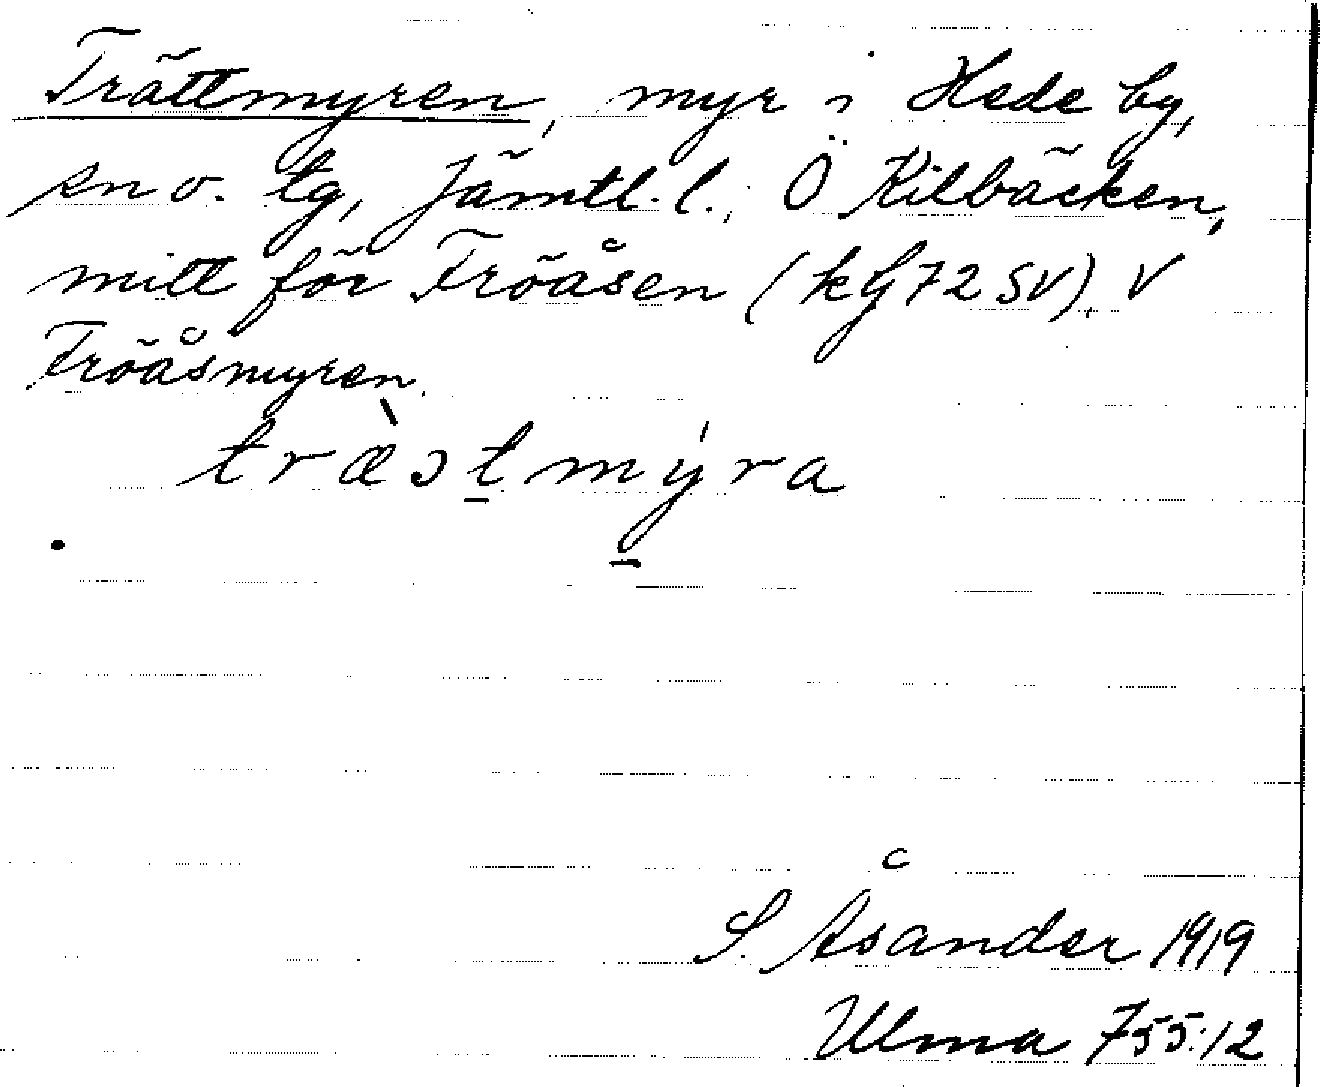 Trättmyren, myr i Hede by,
sn o. tg, Jämtl. l.; Ö Kilbäcken,
mitt för Tröåsen (kg 72 SV), V
Tröåsmyren.
træ̀ɔt̠mýra
S. Åsander 1919
Ulma 755:12